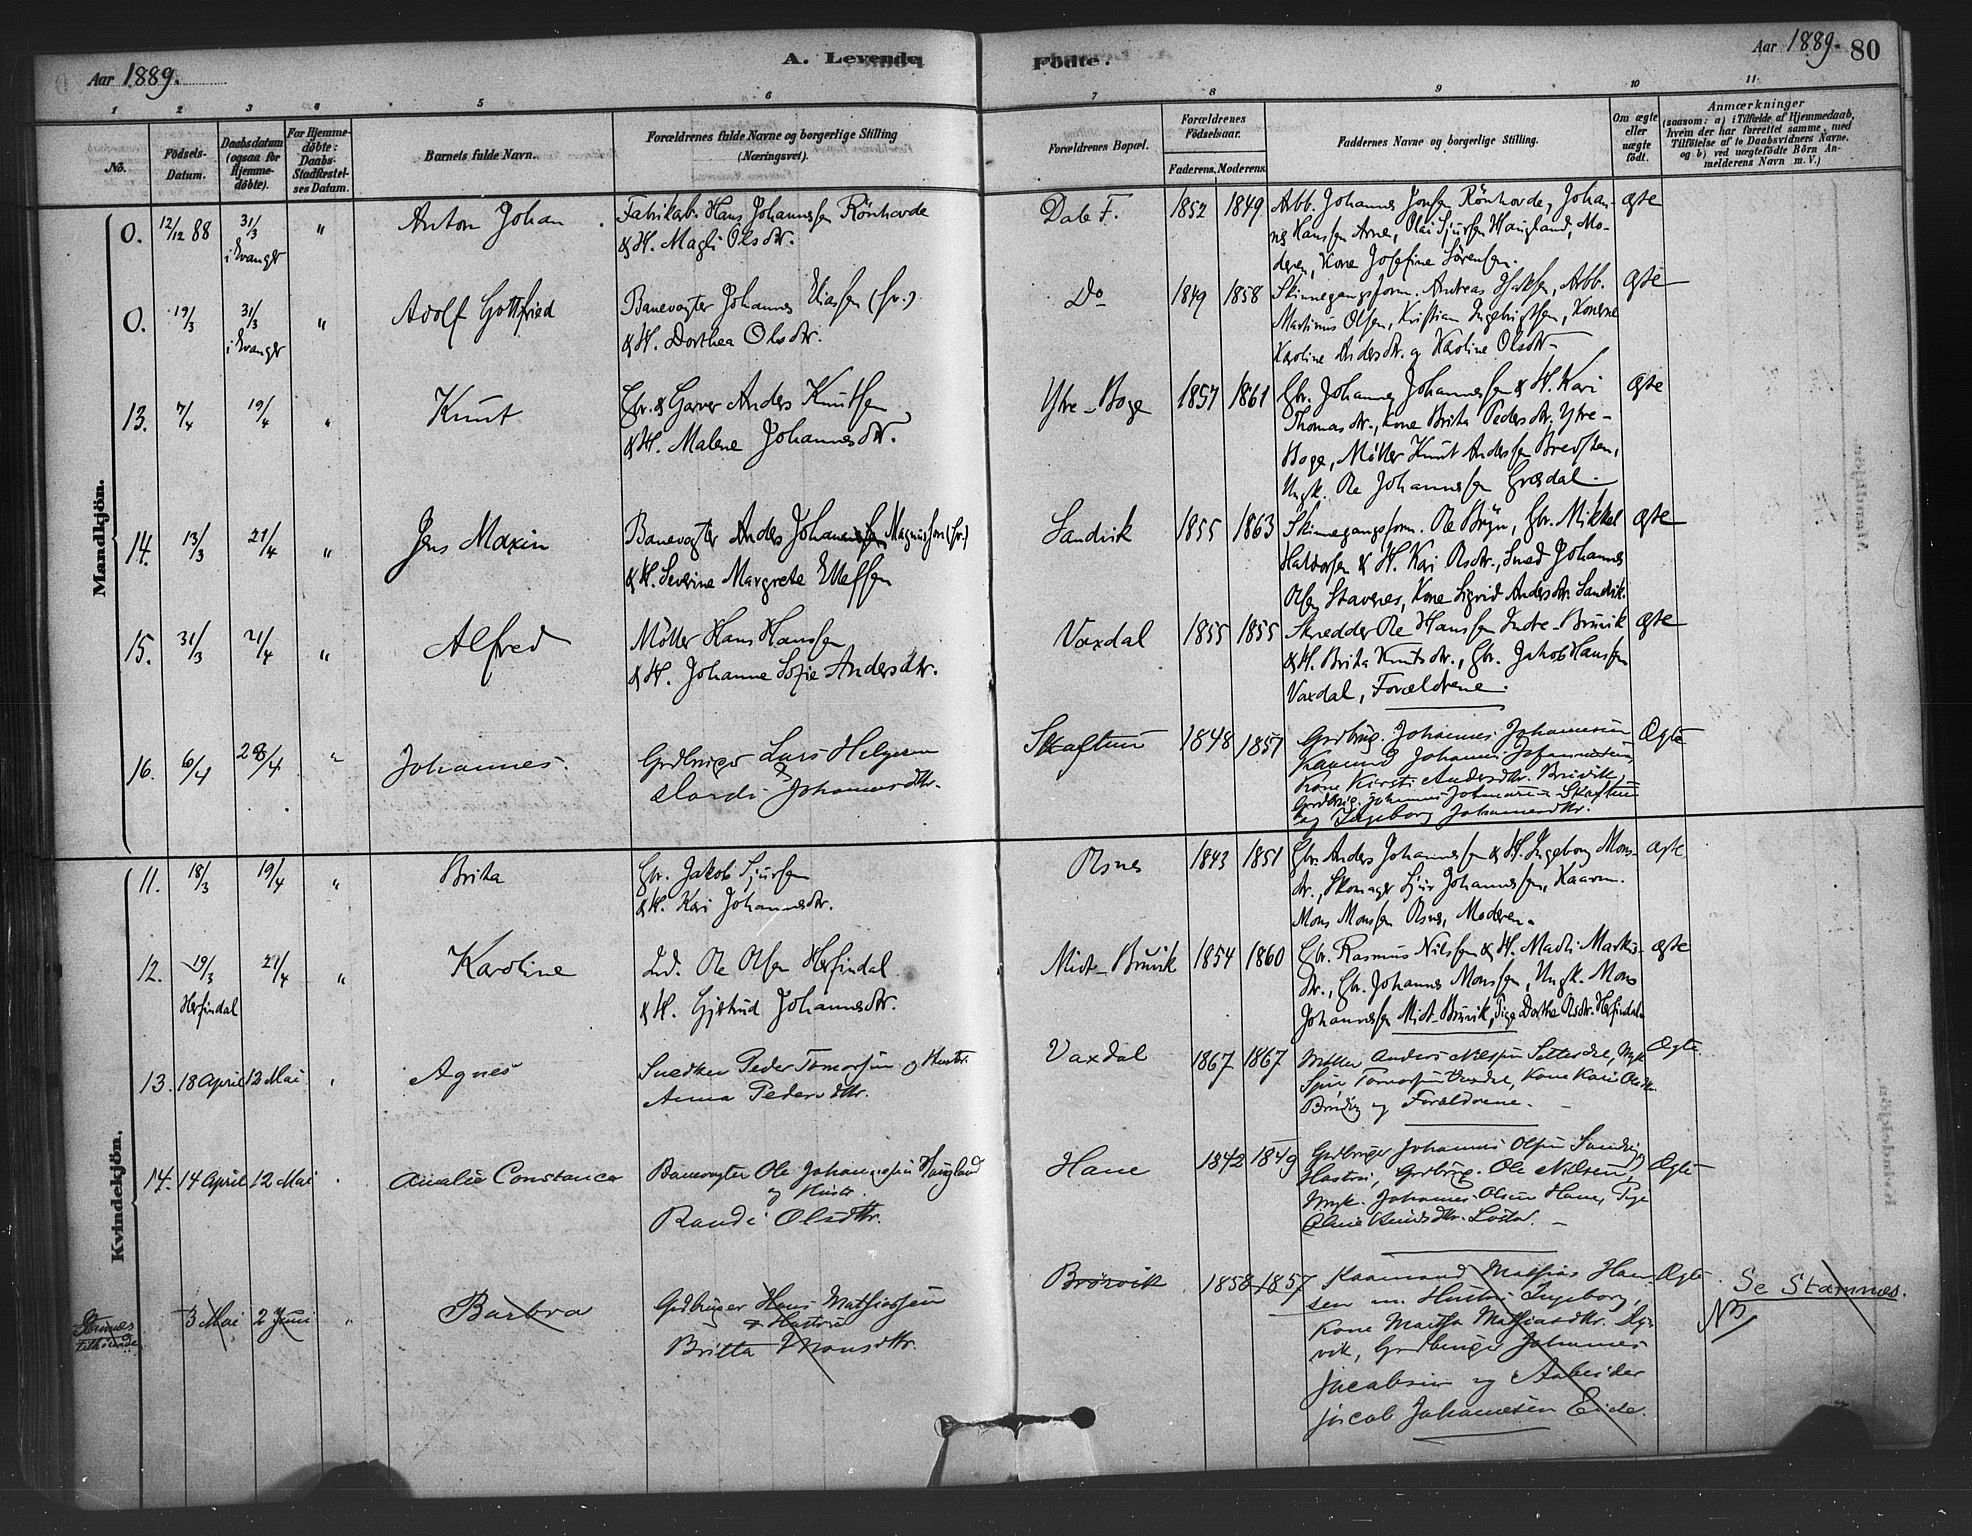 Aar 1889.
A. Levende
Fødte.
Aar 1889.
80
1
2
3
4
5
6
7
8
9
10
11
No.
Fødsels-
Datum.
Daabsdatum
(ogsaa for
Hjemme-
døbte).
For Hjemme-
døbte:
Daabs-
Stadfæstel-
ses Datum.
Barnets fulde Navn.
Forældrenes fulde Navne og borgerlige Stilling
(Næringsvei).
Forældrenes Bopæl.
Forældrenes
Fødselsaar.
Faderens.
Moderens.
Faddernes Navne og borgerlige Stilling.
Om ægte
eller
uægte
født.
Anmærkninger
(saasom: a) i Tilfælde af Hjemmedaab,
hvem der har forrettet samme, med
Tilføielse af to Daabsvidners Navne,
og b) ved uægtefødte Børn An-
melderens Navn m. V.)
Mandkjön.
0. 12/12 88 31/3 i Evanger " Anton Johan
Fabrikarb. Hans Johannessen Rönhovde
& H. Magli Olsdtr.
Dale F. 1852 1849
Arbb. Johannes Jonsen Rönhovde, Johan-
nes Hanssen Arne, Olai Sjursen Haugland, Mo-
deren, Kone Josefine Sörensen.
Ægte
0. 19/3 31/3 i Evanger " Adolf Gottfried
Banevogter Johannes Eliassen (Sv.)
& H. Dorthea Olsdtr.
Do 1849 1858
Skinnegangsform. Andreas Isaksen, Arbb.
Martinus Olsen, Kristian Ingebrigtsen, Konerne
Karoline Andersdtr. og Karoline Olsdtr.
Ægte
13. 7/4 19/4 " Knut
Gbr. & Garver Anders Knutsen
& H. Malene Johannesdtr.
Ytre-Boge 1857 1861
Gbr. Johannes Johannessen & H. Kari
Thomasdtr., Kone Brita Pedersdtr. Ytre-
Boge, Möller Knut Anderssen Bredsten,
Ungk. Ole Johannessen Græsdal.
Ægte
14. 13/3 21/4 " Jens Maxin
Banevogter Anders Johannessen Magnussen (Sv.)
& H. Severine Margrete Ellefsen
Sandvik 1855 1863
Skinnegangsform. Ole Bryn, Gbr. Mikkel
Haldorsen & H. Kari Olsdtr., Smed Johannes
Olsen Stavenes, Kone Sigrid Andersdtr. Sandvik.
Ægte
15. 31/3 21/4 " Alfred
Möller Hans Hanssen
& H. Johanne Sofie Andersdtr.
Vaxdal 1855 1855
Skredder Ole Hanssen Indre-Bruvik
& H. Brita Knutsdtr., Gbr. Jakob Hanssen
Vaxdal, Forældrene.
Ægte
16. 6/4 28/4 " Johannes.
Grdbruger Lars Helgesen
& Mardi Johannesdtr.
Skaftun 1848 1857
Grdbrug. Johannes Johannesen
Kaarmd Johannes Johannesen,
Kone Kirsti Andersdtr. Bruvik,
Grdbrug. Johannes Johannesen Skaftun
og Ingeborg Johannesdtr.
Ægte
Kvindekjön.
11. 18/3 19/4 " Brita
Gbr. Jakob Sjursen
& H. Kari Johannesdtr.
Olsnes 1843 1851
Gbr. Anders Johannessen & H. Ingeborg Mons-
dtr., Skomager Sjur Johannessen, Kaarm.
Mons Monsen Olsnes, Moderen.
Ægte
12. 19/3 Herfindal 21/4 " Karoline
Ind. Ole Olsen Herfindal
& H. Gjertrud Johannesdtr.
Midt-Bruvik 1854 1860
Gbr. Rasmus Nilssen & H. Madli Markus-
dtr., Gbr. Johannes Monssen, Ungk. Mons
Johannessen Midt-Bruvik, Pige Dorthe Olsdtr. Herfindal.
Ægte
13. 18 April 12 Mai " Agnes
Snedker Peder Tomassen og Hustr.
Anna Pedersdtr.
Vaxdal 1867 1867
Möller Anders Nilssen Settesdal, Ungk.
Sjur Tomassen Vaxdal, Kone Kari Olsdtr.
og Forældrene.
Ægte
14. 14 April 12 Mai Amalie Constanca
Banevogter Ole Johannesen Haugland
og Hustr.
Randi Olsdtr.
Hane 1842 1849
Grdbruger Johannes Olsen
Hustru, Grdbrug. Ole Nilsen,
Ungk. Johannes Olsen Hane, Pige
Knudsdtr.
Ægte
Stamnes
tilhörende
3 Mai 2 Juni " Barbra
Grdbruger Hans Mathiassen
& Hustru
Britta Monsdtr.
Brörvik 1858 1857
Kaarmand Mathias Han-
sen m. Hustru Ingeborg,
Kone Martha Mathiasdtr.
vik, Grdbruger Johannes
Jacobsen og Arbeider
Jacob Johannesen Eide.
Ægte
Se Stamnes.
NB